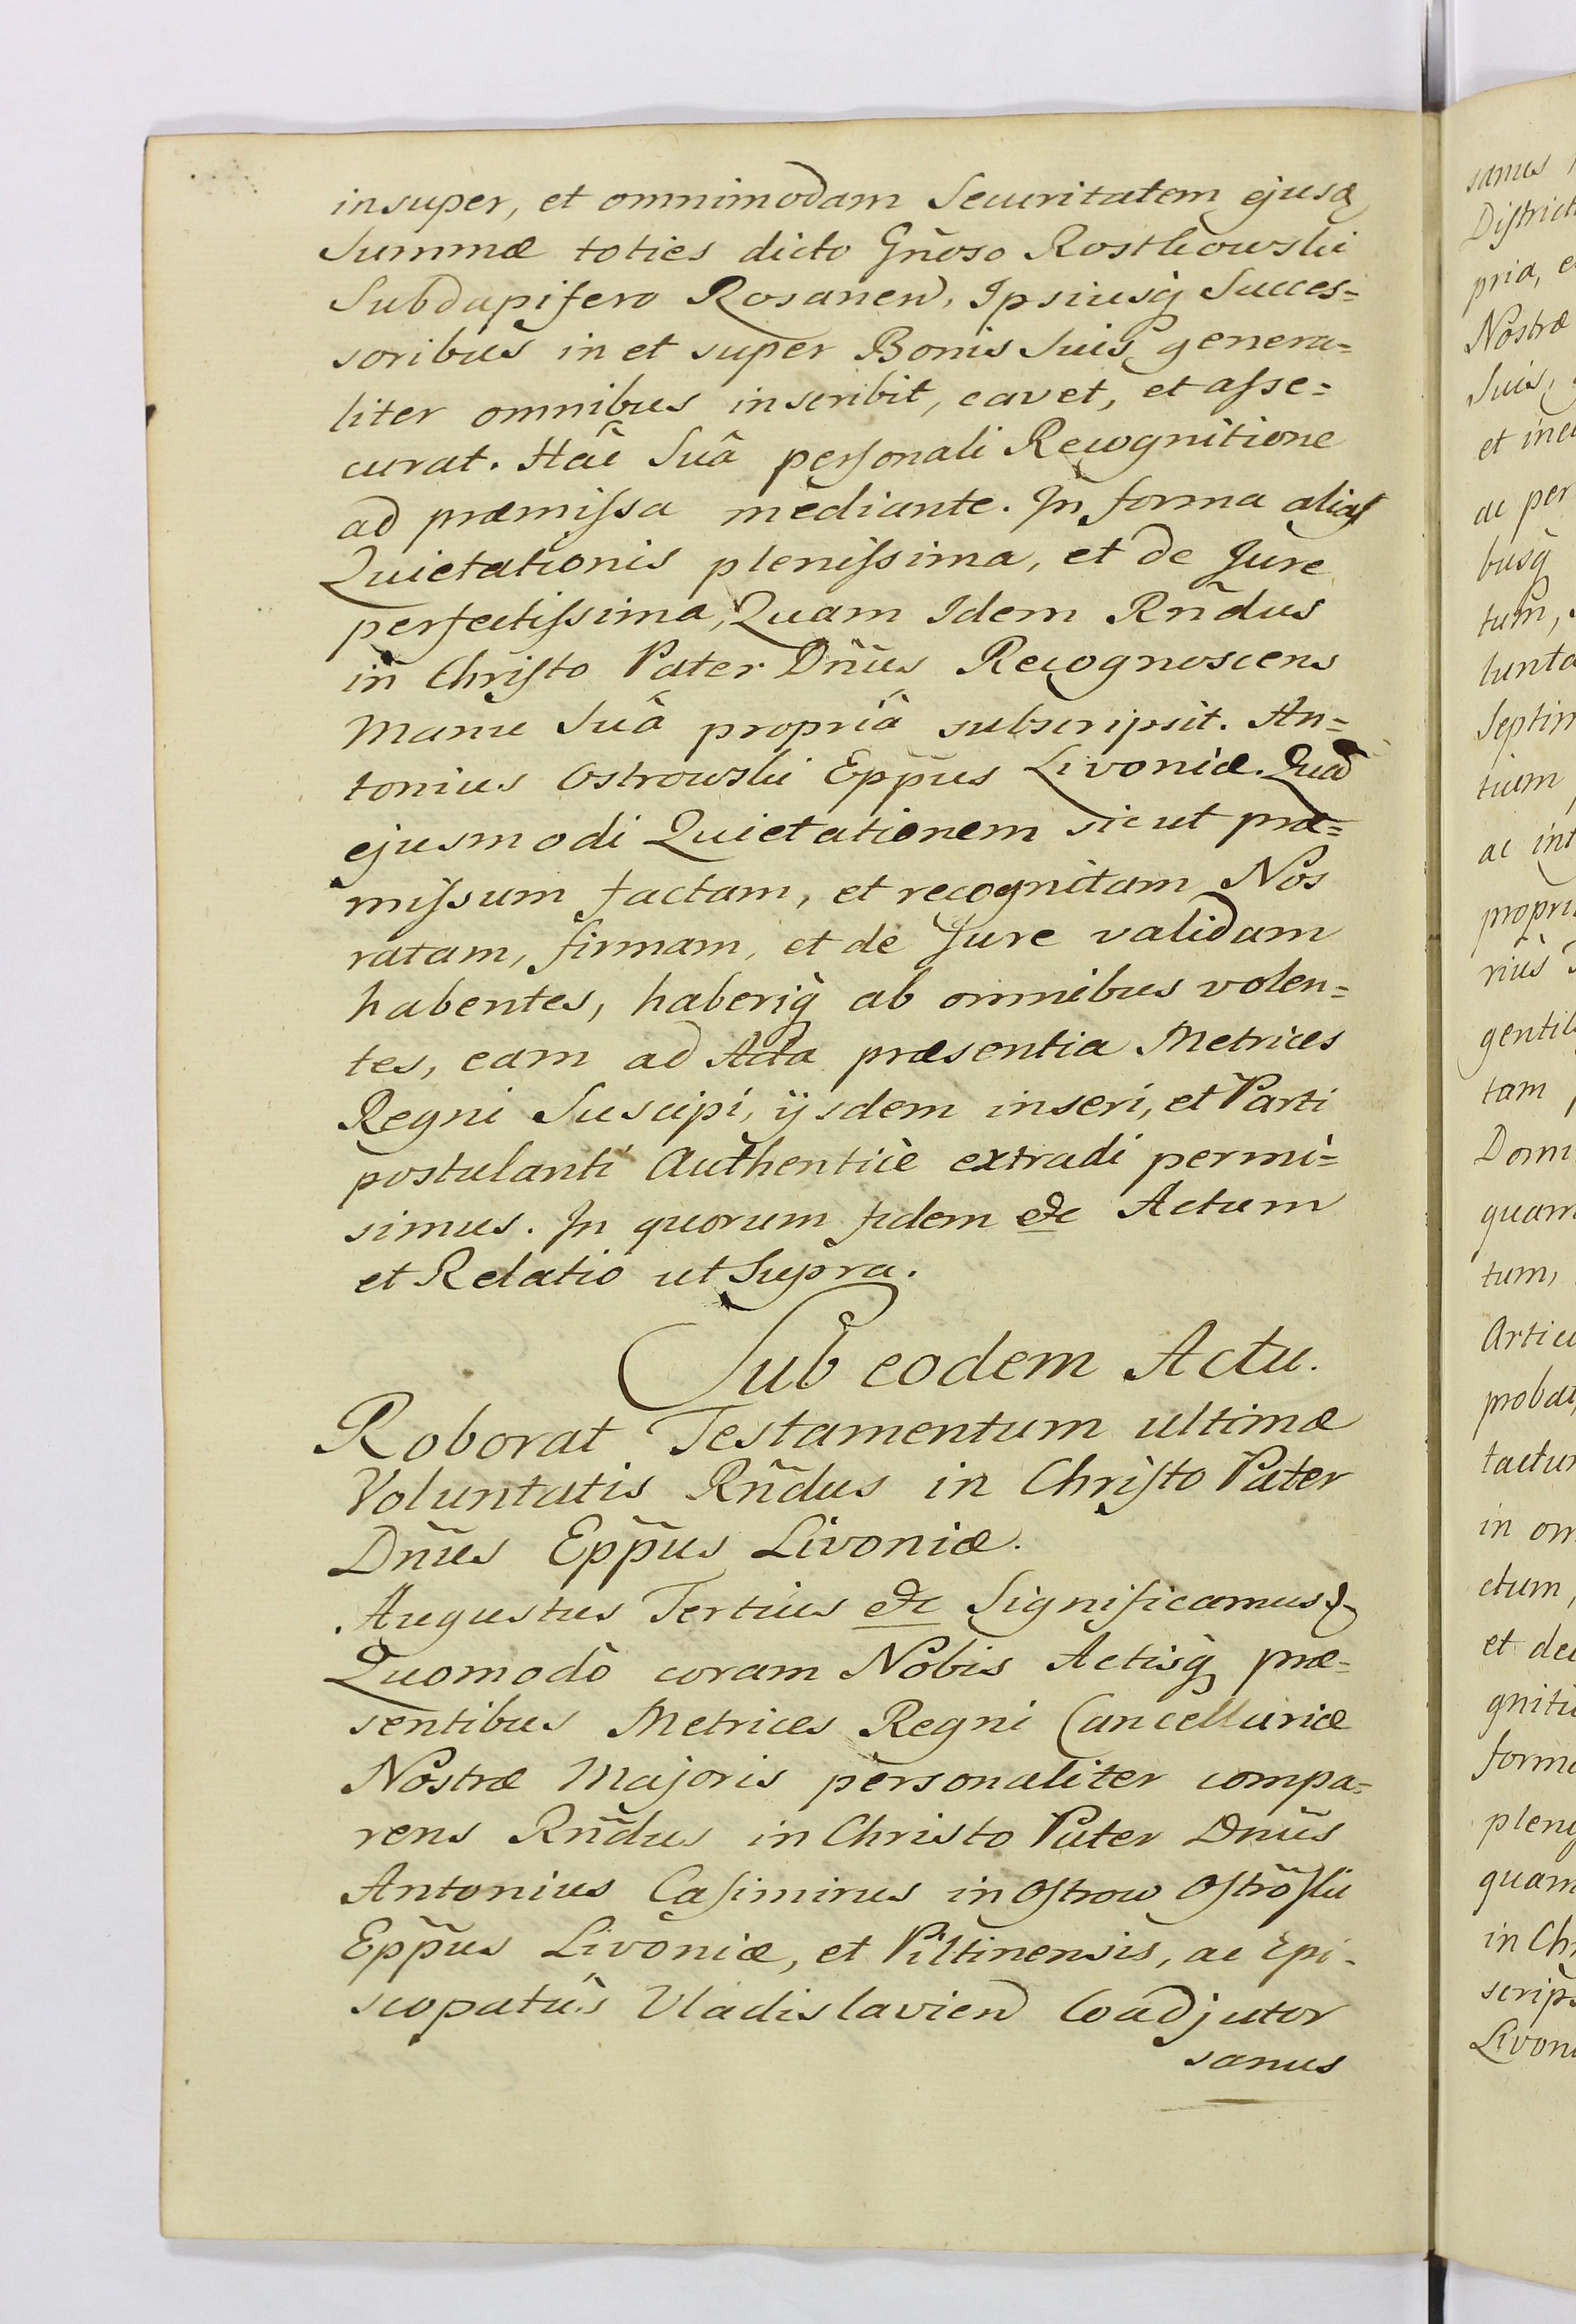 insuper, et omnimodam Securitatem ejusq
Summæ toties dicto Gñoso Rostkowski
Subdapifero Rosanen, Ipsiusq Succes=
soribus in et super Bonis Suis genera=
liter omnibus inscribit, cavet, et asse=
curat. Hac Suâ personali Recognitione
ad præmissa mediante. In forma alias
Quietationis plenissima, et de Jure
perfectissima, Quam Idem Rñdus
in Christo Pater Dñus Recognoscens
Manu Suâ propriâ subscripsit. An=
tonius Ostrowski Eppus Livoniæ. Quâd
ejusmodi Quietationem sicut præ=
missum factam, et recognitam Nos
ratam, firmam, et de Jure validam
habentes, haberiq ab omnibus volen=
tes, eam ad Acta præsentia Metrices
Regni Suscipi, ijsdem inseri, et Parti
postulanti Authenticè extradi permi=
simus. In quorum fidem etc Actum
et Relatio ut Supra.
Sub eodem Actu.
Roborat Testamentum ultimæ
Voluntatis Rñdus in Christo Pater
Dñus Eppus Livoniæ.
Augustus Tertius etc Significamus etc
Quomodò coram Nobis Actisq præ=
sentibus Metrices Regni Cancellariæ
Nostræ Majoris personaliter compa=
rens Rñdus in Christo Pater Dñus
Antonius Casimirus in Ostrow Ostrõski
Eppus Livoniæ, et Piltinensis, ac Epi-
scopatûs Vladislavien Coadjutor
sanus
sanus
District
pria, e
Nostræ
Suis,
et ine
ac per
busq
tum,
lunta
Septim
tium
ac int
propri
rius
gentil
tam
Domi
quam
tum,
Articu
probat
tactu
in om
ctum,
et de
gniti
forma
plen
quam
in Ch
scrips
Livon